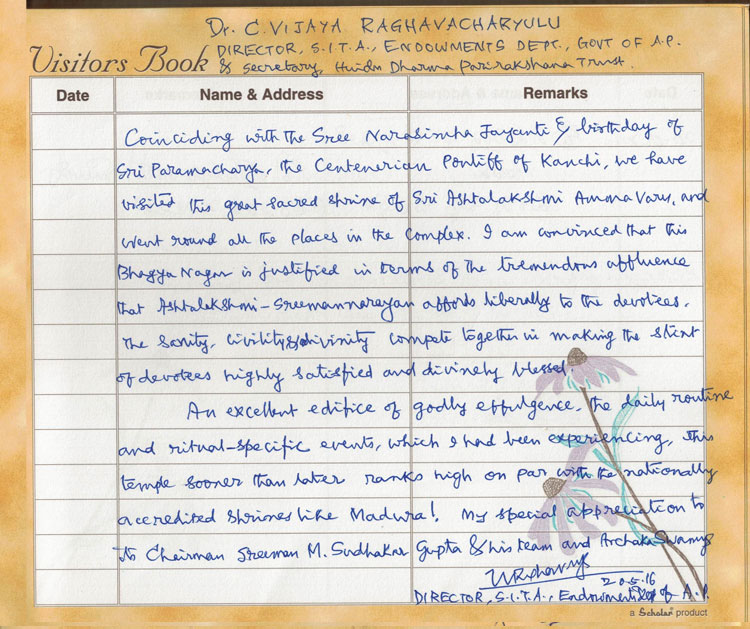 Dr. C. VIJAYA RAGHAVACHARYULU
DIRECTOR, S.I.T.A., ENDOWMENTS DEPT., GOVT OF A.P.
Visitors Book & Secretary, Hindu Dharma Parirakshana Trust.
Date Name & Address Remarks
Coinciding with the Sree Narasimha Jayanti & birthday of
Sri Paramacharya, the Centenerian Pontiff of Kanchi, we have
visited this great sacred shrine of Sri Ashtalakshmi Ammavaru, and
went round all the places in the complex. I am convinced that this
Bhagya Nagar is justified in terms of the tremendous affluence
that Ashtalakshmi-Sreemannarayan affords liberally to the devotees.
The sanity, civility & divinity compete together in making the
of devotees highly satisfied and divinely blessed.
An excellent edifice of godly effulgence, the daily routine
and ritual-specific events, which I had been experiencing, this
temple sooner than later ranks high on par with the nationally
accredited shrines like Madurai. My special appreciation to
its Chairman Sreeman M. Sudhakar Gupta & his team and Archaka Swamys
20.5.16
DIRECTOR, S.I.T.A., Endowments Dept of A.P.
a Scholar product